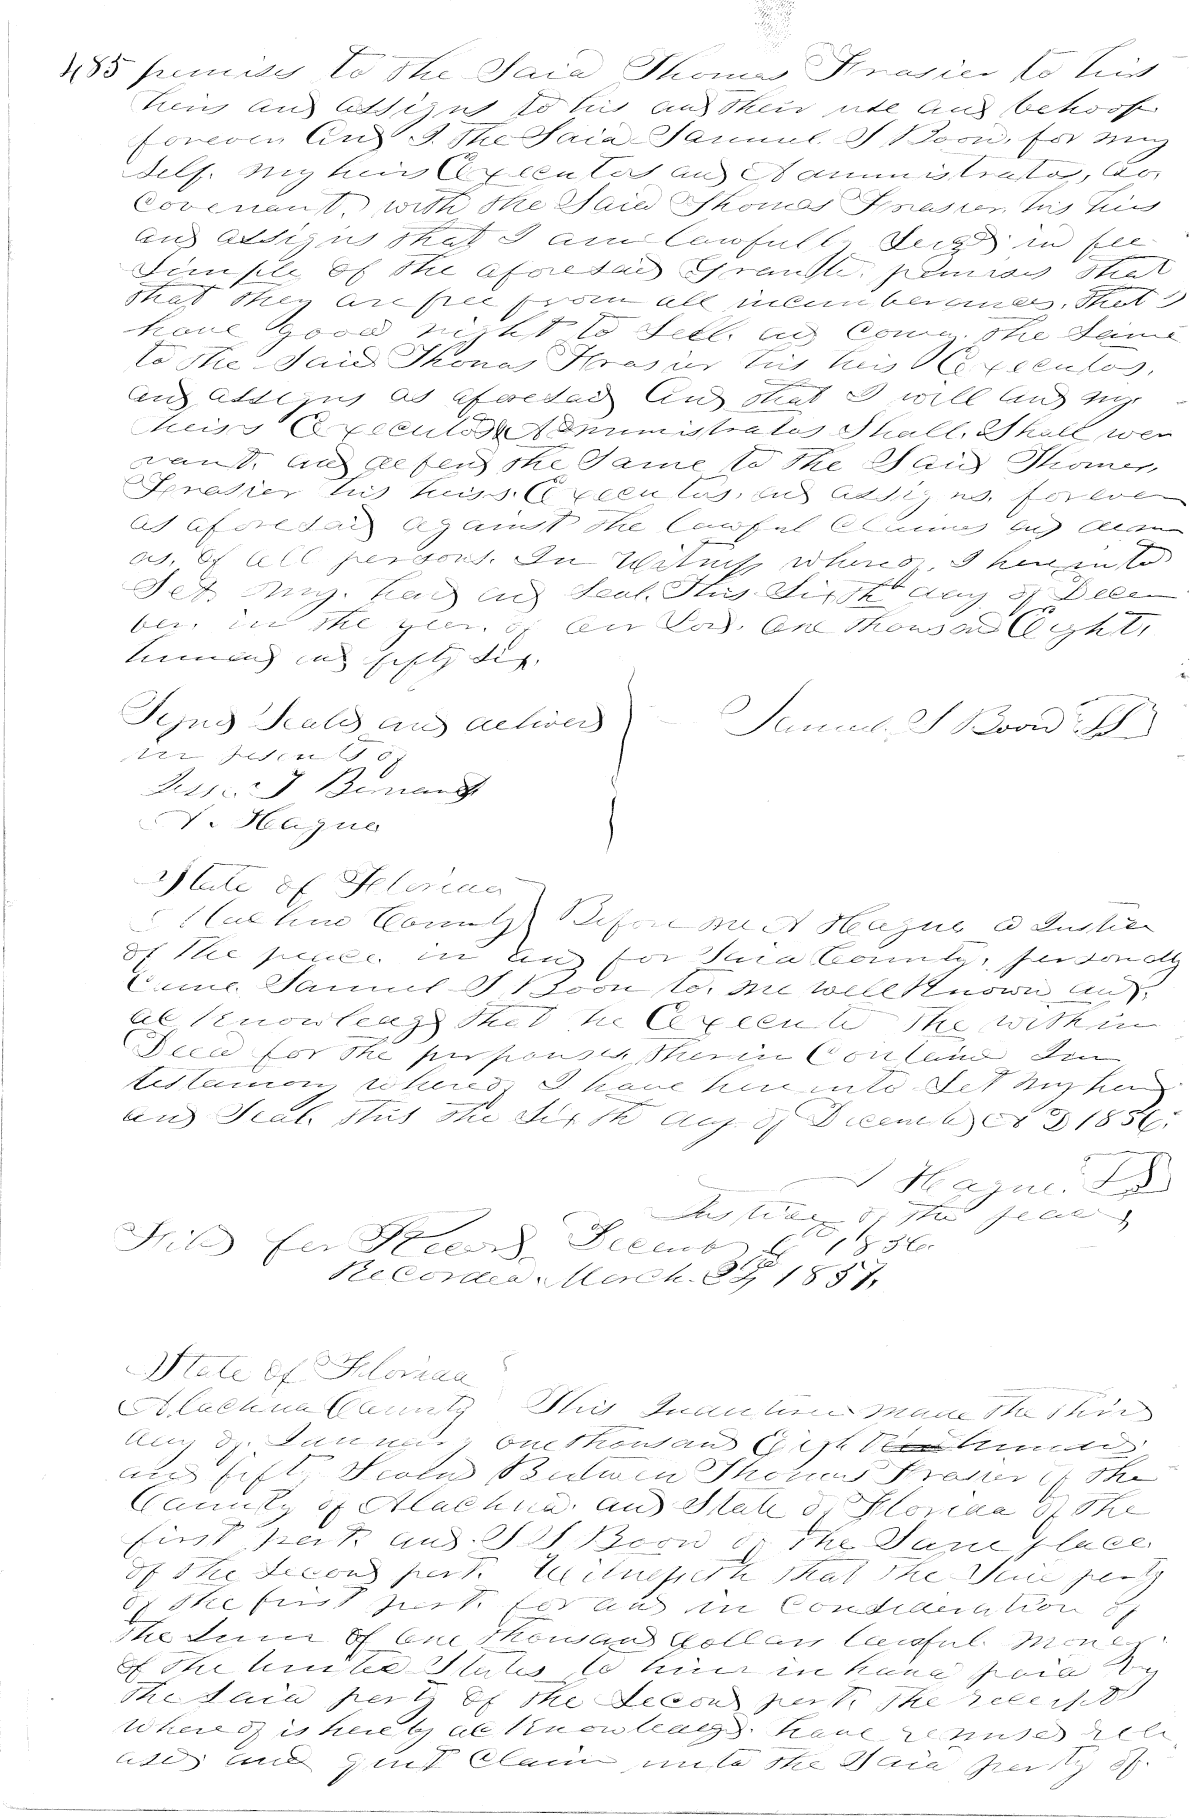 485 premises to the Said Thomas Frasier to his
heirs and assigns to his and their use and behoof
forever And I the Said Samuel S Boon, for my
self. my heirs Executors and Administrators, do
covenant, with the Said Thomas Frasier his heirs
and assigns that I am lawfully Seizd in fee
Simple of the aforesaid Grante. premises that
that they are free from all incumberances. that I
have good right to Sell. and convey. the Same
to the Said Thomas Frasier his heirs Executors,
and assigns as aforesaid And that I will and my
heirs Executors Administrators Shall. Shall wer
rant. and defend the Same to the Said Thomas,
Frasier his heirs. Executors. and assigns. forever
as aforesaid against the lawful Claimes and deman
ds. of all persons. In Witness whereof, I hereinto
Set my. hand and Seal. This Sixth day of Decem
ber. in the year. of our Lord. One thousand Eight
hundred and fifty Six.
Signd Seald and deliverd
in presents of
Samuel. S Boon
Jesse. J Bernard
A. Hague
State of Florida
Alachua County Before me A Hague a Justice
of the peace. in and for Said County, personally
Came. Samuel S Boon to. me well Known and.
acknowledgd that he Execute the within
Deed for the purposes, therin Containd In
testamony whereof I have hereinto Set my hand
and Seal. this the Sixth day of December A D 1856.
A Hague.
Justice of the peace
Fild for Record December 6th 1856.
Recorded. March. 1857.
State of Florida
Alachua County This Indenture made the third
day of. January one thousand Eight hundred
and fifty Seven Between Thomas Frasier of the
County of Alachua. and State of Florida of the
first part. and. S S Boon of the Same place.
of the Second part. Witnesseth that the Said party
of the first part. for and in Consideration of
the Sum of One thousand dollars lawful. money
of the United States to him in hand paid by
the Said party of the Second part. the receipt
whereof is hereby acknowledgd. have remised rele
ased and quit Claim unto the Said party of.